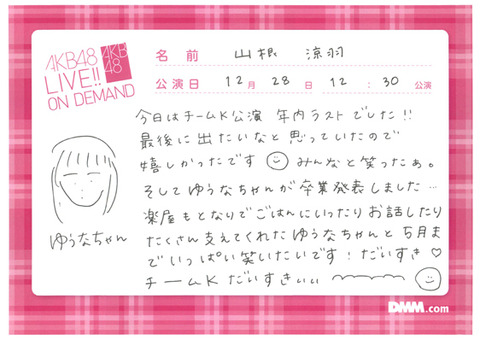 AKB48
LIVE!!
ON DEMAND
AKB
48
名前 山根 涼羽
公演日 12月28日 12:30公演
今日はチームK公演 年内ラストでした!!
最後に出たいなと思っていたので
嬉しかったです みんなと笑ったぁ。
そしてゆうなちゃんが卒業発表しました…
楽屋もとなりでごはんにいったりお話したり
たくさん支えてくれたゆうなちゃんと5月ま
でいっぱい笑いたいです!だいすき♡
チームKだいすきぃぃ
ゆうなちゃん
DMM.com